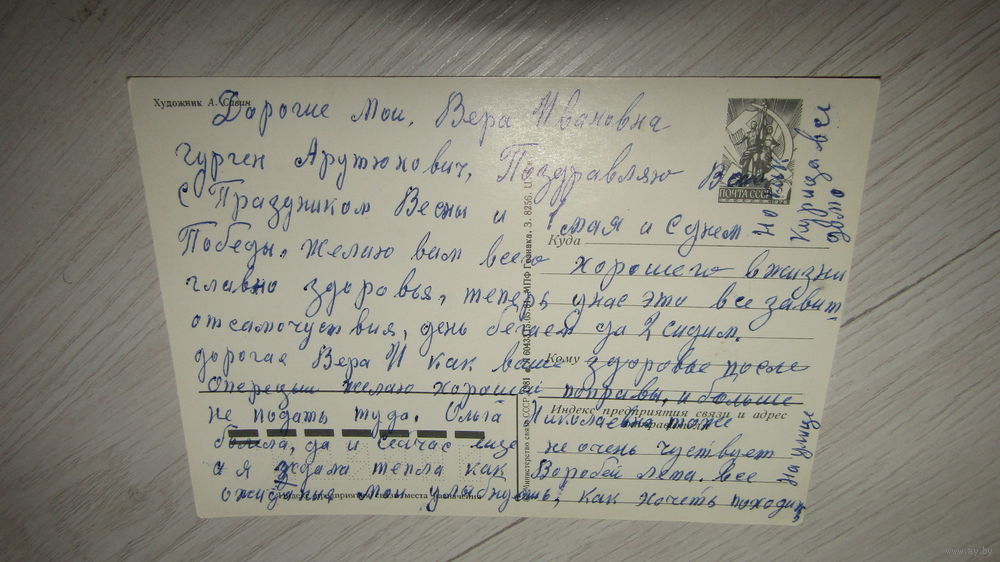 Художник А. Савин
Дорогие мои, Вера Ивановна
Гурген Арутюнович, Поздравляю Вас
с Праздником Весны и 1 мая и с днем
Победы, желаю вам всего хорошего в жизни
главно здоровья, теперь у нас это все завит-
от самочуствия, день бегаем да 2 сидим.
дорогая Вера И как ваше здоровье после
операции желаю хорошей поправы, и больше
не подать туда. Ольга Николаевна тоже
болела, да и сейчас еще не очень чуствует
а я ждала тепла как Воробей лета. все
ожидания мои улыбнулись, как хочеть походить
на улице
но пык
курица все
дома
ПОЧТА СССР
Куда
Кому
Индекс предприятия связи и адрес
отправителя
Министерство связи СССР
МПФ Гознака. З. 8256.